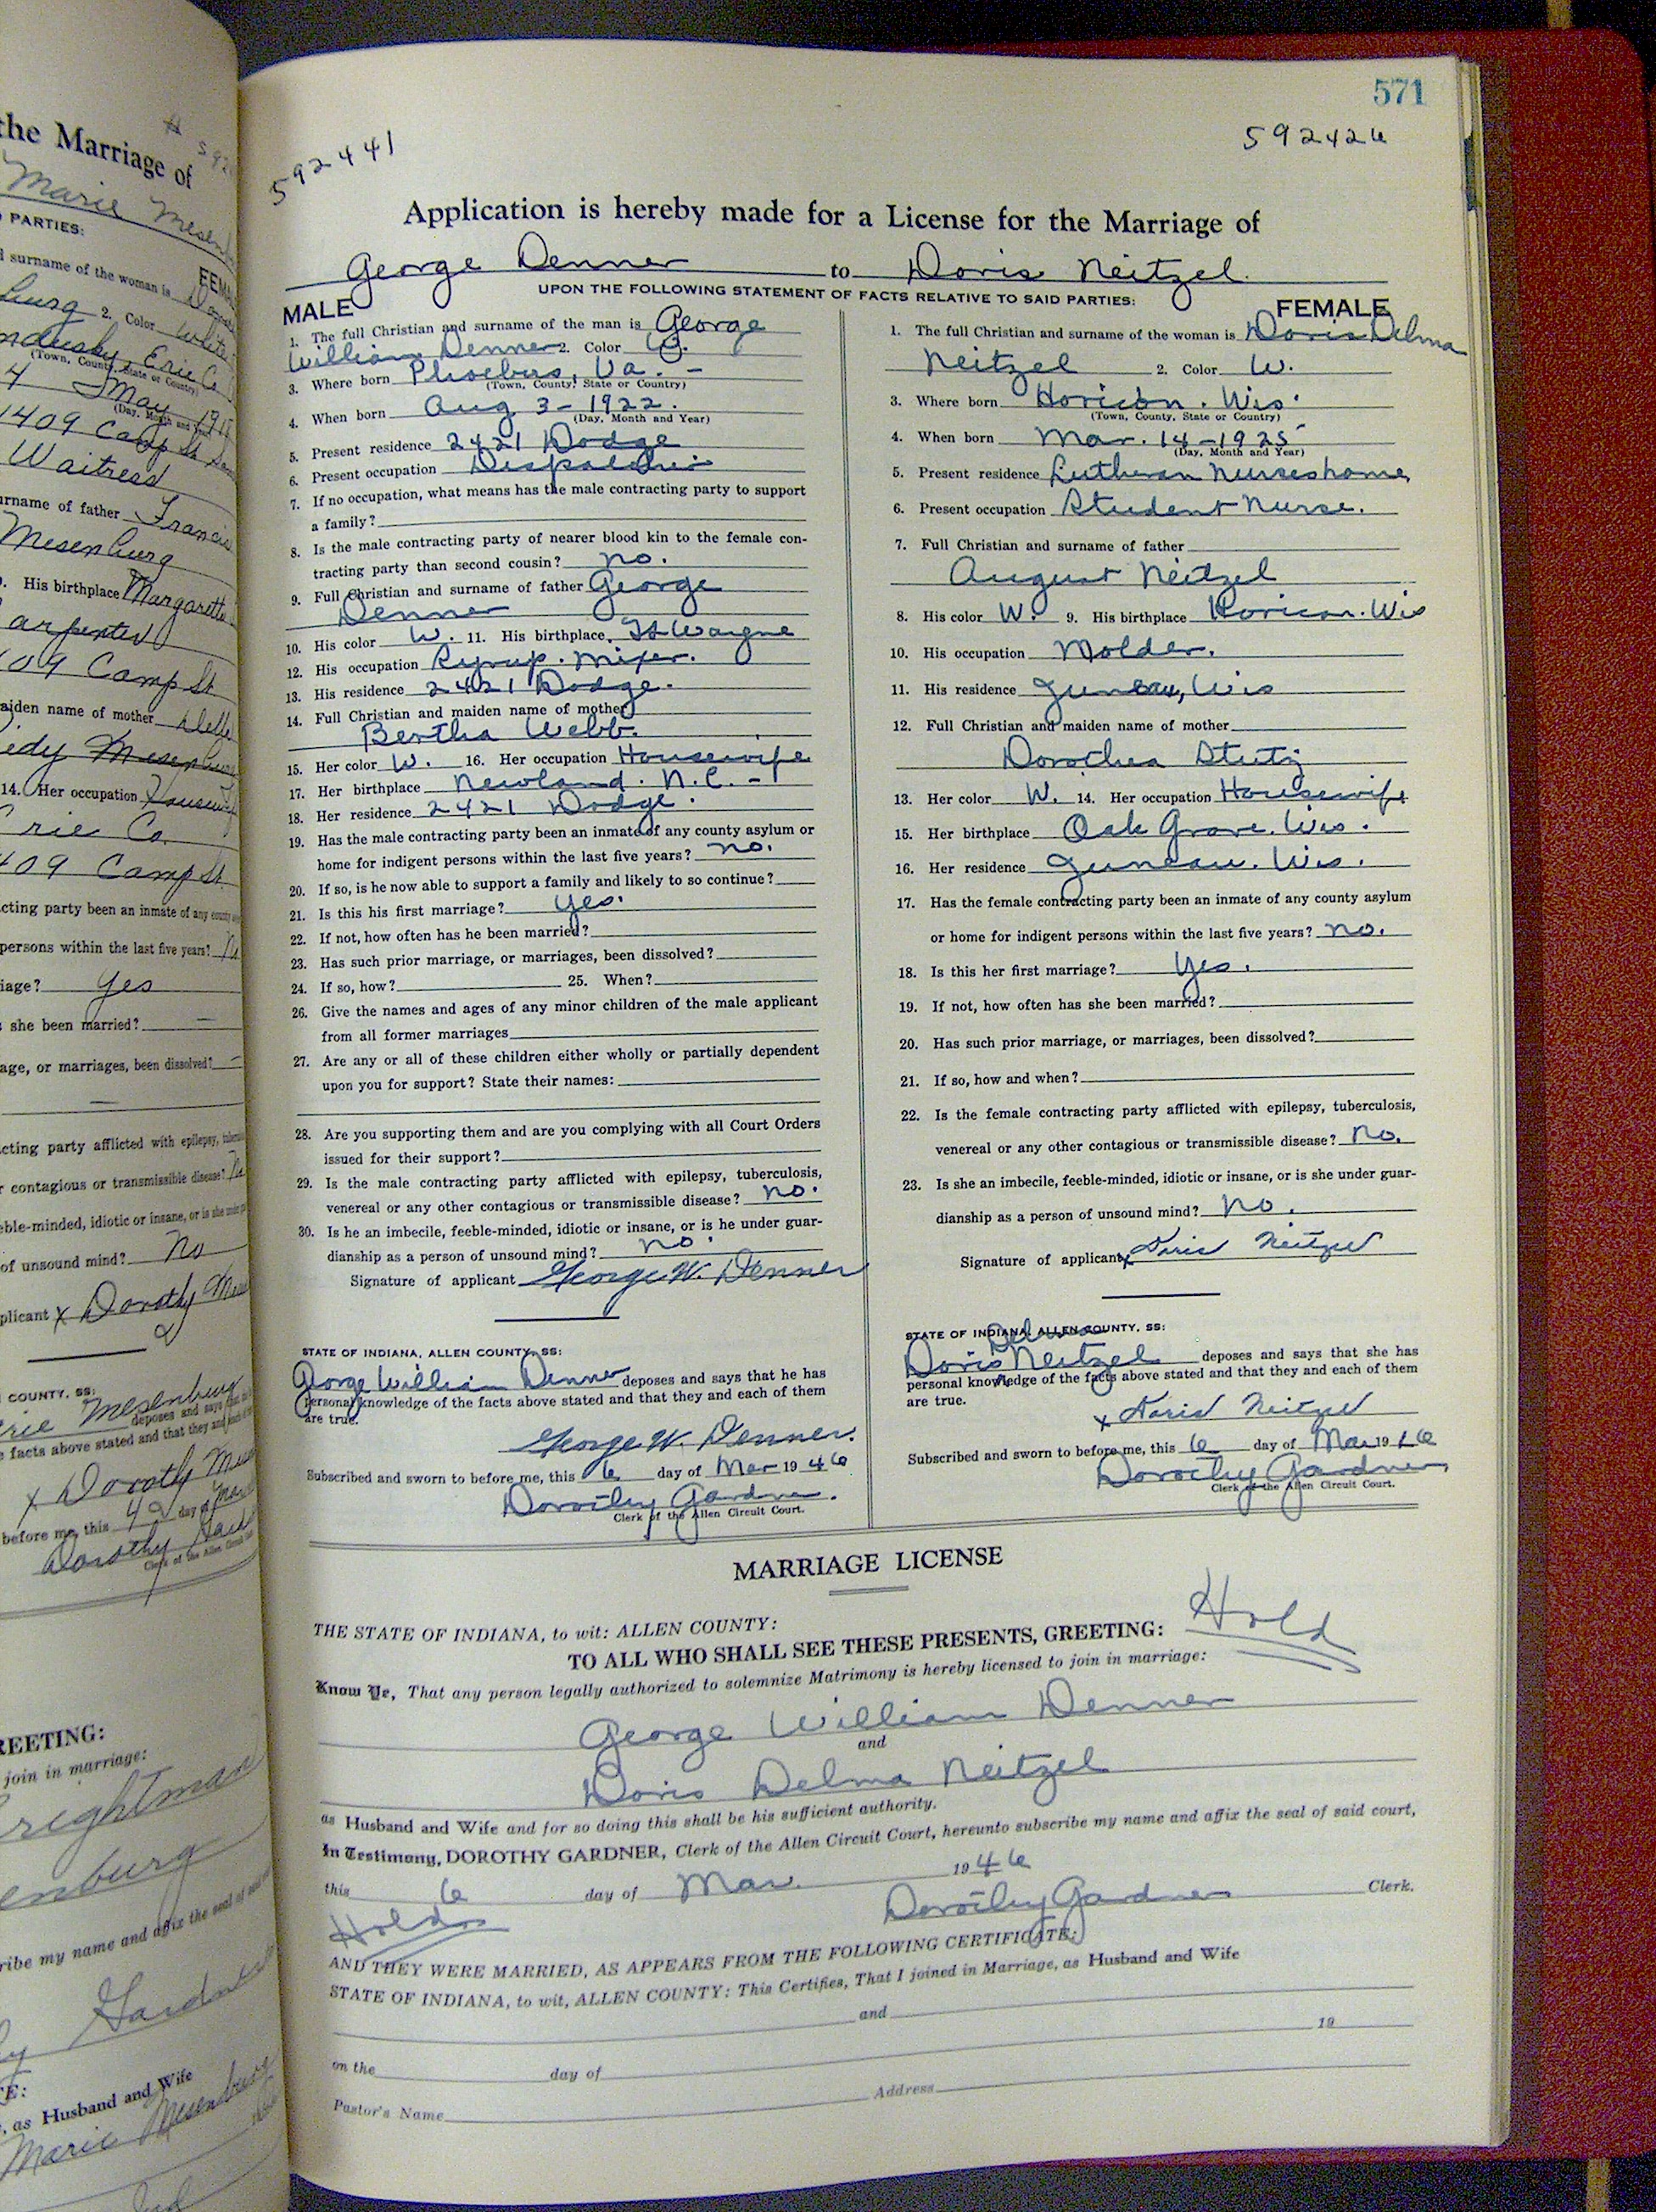 the Marriage of
Marie Mesen
PARTIES:
surname of the woman is
FEM
2. Color White
(Town, County, State or Country)
4 May
(Day, Month and
1409 Camp St
Waitress
urname of father Francis
Mesenburg
His birthplace Margaretta
arpenter
409 Camp St
aiden name of mother
14. Her occupation
Erie Co.
409 Camp St
cting party been an inmate of any county
persons within the last five years?
iage? Yes
she been married? —
age, or marriages, been dissolved? —
—
cting party afflicted with epilepsy,
r contagious or transmissible disease?
eble-minded, idiotic or insane, or is she
of unsound mind? No
plicant x Dorothy
COUNTY, SS:
Mesenburg
deposes and says
e facts above stated and that they
x Dorothy
before me, this 4 day of
Dorothy
Clerk of the Allen
REETING:
join in marriage:
rightman
enburg
ribe my name and affix the seal of
TE:
, as Husband and Wife
Marie Mesenburg
571
592441
592426
Application is hereby made for a License for the Marriage of
George Denner to Doris Neitzel
UPON THE FOLLOWING STATEMENT OF FACTS RELATIVE TO SAID PARTIES:
MALE
1. The full Christian and surname of the man is George
William Denner 2. Color W.
3. Where born Phoebus, Va. -
(Town, County, State or Country)
4. When born Aug 3-1922.
(Day, Month and Year)
5. Present residence 2421 Dodge
6. Present occupation Dispatcher
7. If no occupation, what means has the male contracting party to support
a family?
8. Is the male contracting party of nearer blood kin to the female con-
tracting party than second cousin? no.
9. Full Christian and surname of father George
Denner
10. His color W. 11. His birthplace. Ft Wayne
12. His occupation Syrup. Mixer.
13. His residence 2421 Dodge.
14. Full Christian and maiden name of mother
Bertha Webb.
15. Her color W. 16. Her occupation Housewife
17. Her birthplace Newland. N.C. -
18. Her residence 2421 Dodge.
19. Has the male contracting party been an inmate of any county asylum or
home for indigent persons within the last five years? no.
20. If so, is he now able to support a family and likely to so continue?
21. Is this his first marriage? yes.
22. If not, how often has he been married?
23. Has such prior marriage, or marriages, been dissolved?
24. If so, how? 25. When?
26. Give the names and ages of any minor children of the male applicant
from all former marriages
27. Are any or all of these children either wholly or partially dependent
upon you for support? State their names:
28. Are you supporting them and are you complying with all Court Orders
issued for their support?
29. Is the male contracting party afflicted with epilepsy, tuberculosis,
venereal or any other contagious or transmissible disease? no.
30. Is he an imbecile, feeble-minded, idiotic or insane, or is he under guar-
dianship as a person of unsound mind? no.
Signature of applicant George W. Denner
STATE OF INDIANA, ALLEN COUNTY, SS:
George William Denner deposes and says that he has
personal knowledge of the facts above stated and that they and each of them
are true.
George W. Denner.
Subscribed and sworn to before me, this 6 day of Mar 1946
Dorothy Gardner.
Clerk of the Allen Circuit Court.
FEMALE
1. The full Christian and surname of the woman is Doris Delma
Neitzel 2. Color W.
3. Where born Horicon. Wis.
(Town, County, State or Country)
4. When born Mar. 14-1925
(Day, Month and Year)
5. Present residence Lutheran Nurses home,
6. Present occupation Student Nurse.
7. Full Christian and surname of father
August Neitzel
8. His color W. 9. His birthplace Horicon. Wis
10. His occupation Molder.
11. His residence Juneau, Wis
12. Full Christian and maiden name of mother
Dorothea Stutz
13. Her color W. 14. Her occupation Housewife
15. Her birthplace Oak Grove. Wis.
16. Her residence Juneau. Wis.
17. Has the female contracting party been an inmate of any county asylum
or home for indigent persons within the last five years? no.
18. Is this her first marriage? Yes.
19. If not, how often has she been married?
20. Has such prior marriage, or marriages, been dissolved?
21. If so, how and when?
22. Is the female contracting party afflicted with epilepsy, tuberculosis,
venereal or any other contagious or transmissible disease? no.
23. Is she an imbecile, feeble-minded, idiotic or insane, or is she under guar-
dianship as a person of unsound mind? no.
Signature of applicant x Doris Neitzel
STATE OF INDIANA, ALLEN COUNTY, SS:
Delma
Doris Neitzel deposes and says that she has
personal knowledge of the facts above stated and that they and each of them
are true.
x Doris Neitzel
Subscribed and sworn to before me, this 6 day of Mar 1946
Dorothy Gardner,
Clerk of the Allen Circuit Court.
MARRIAGE LICENSE
Hold
THE STATE OF INDIANA, to wit: ALLEN COUNTY:
TO ALL WHO SHALL SEE THESE PRESENTS, GREETING:
Know Ye, That any person legally authorized to solemnize Matrimony is hereby licensed to join in marriage:
George William Denner
and
Doris Delma Neitzel
as Husband and Wife and for so doing this shall be his sufficient authority.
In Testimony, DOROTHY GARDNER, Clerk of the Allen Circuit Court, hereunto subscribe my name and affix the seal of said court,
this 6 day of Mar. 1946
Dorothy Gardner Clerk.
Hold
AND THEY WERE MARRIED, AS APPEARS FROM THE FOLLOWING CERTIFICATE:
STATE OF INDIANA, to wit, ALLEN COUNTY: This Certifies, That I joined in Marriage, as Husband and Wife
and
on the day of 19
Pastor's Name Address